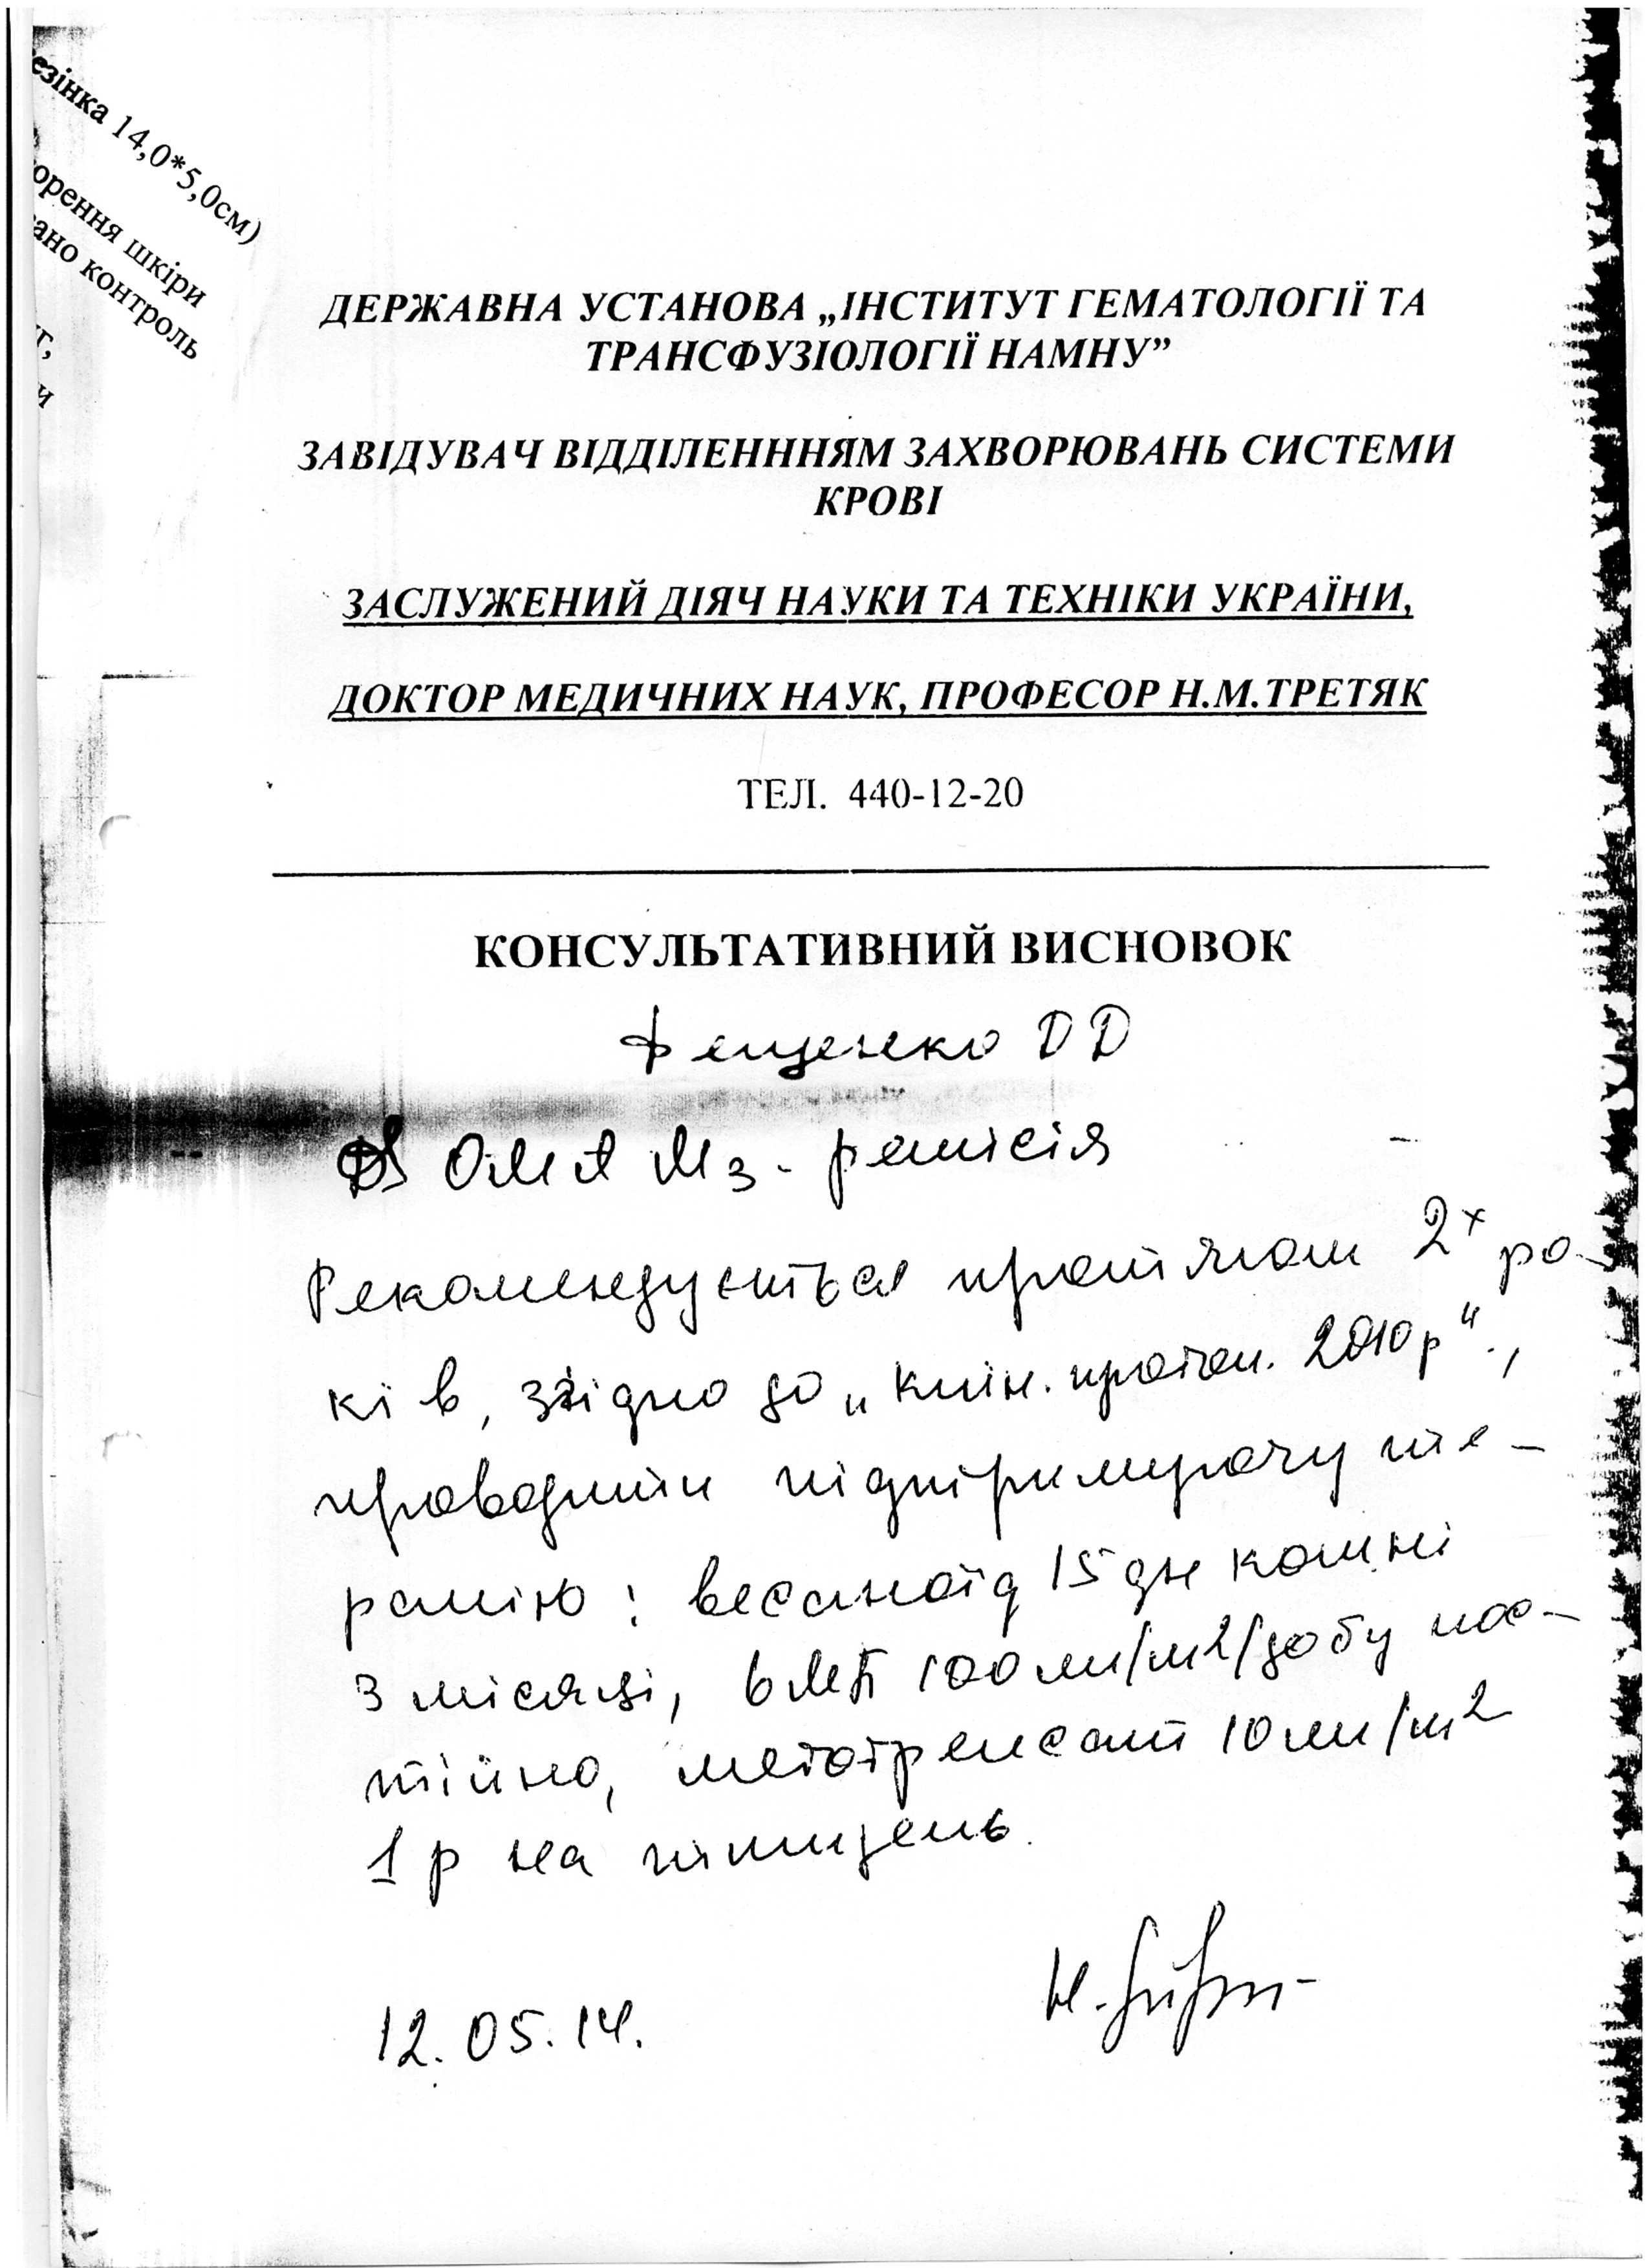 езінка 14,0*5,0см)
орення шкіри
ано контроль
г,
и
ДЕРЖАВНА УСТАНОВА „ІНСТИТУТ ГЕМАТОЛОГІЇ ТА
ТРАНСФУЗІОЛОГІЇ НАМНУ”
ЗАВІДУВАЧ ВІДДІЛЕНННЯМ ЗАХВОРЮВАНЬ СИСТЕМИ
КРОВІ
ЗАСЛУЖЕНИЙ ДІЯЧ НАУКИ ТА ТЕХНІКИ УКРАЇНИ,
ДОКТОР МЕДИЧНИХ НАУК, ПРОФЕСОР Н.М.ТРЕТЯК
ТЕЛ. 440-12-20
КОНСУЛЬТАТИВНИЙ ВИСНОВОК
Фещенко Д Д
DS ОМЛ М3 - ремісія
Рекомендується протягом 2х ро-
ків, згідно до „клін. проток. 2010р“.,
проводити підтримуючу те-
рапію: весаноїд 15 дн кожні
3 місяці, 6МП 100 мг/м2/добу пос-
тійно, метотрексат 10 мг/м2
1 р на тиждень.
12.05.14.